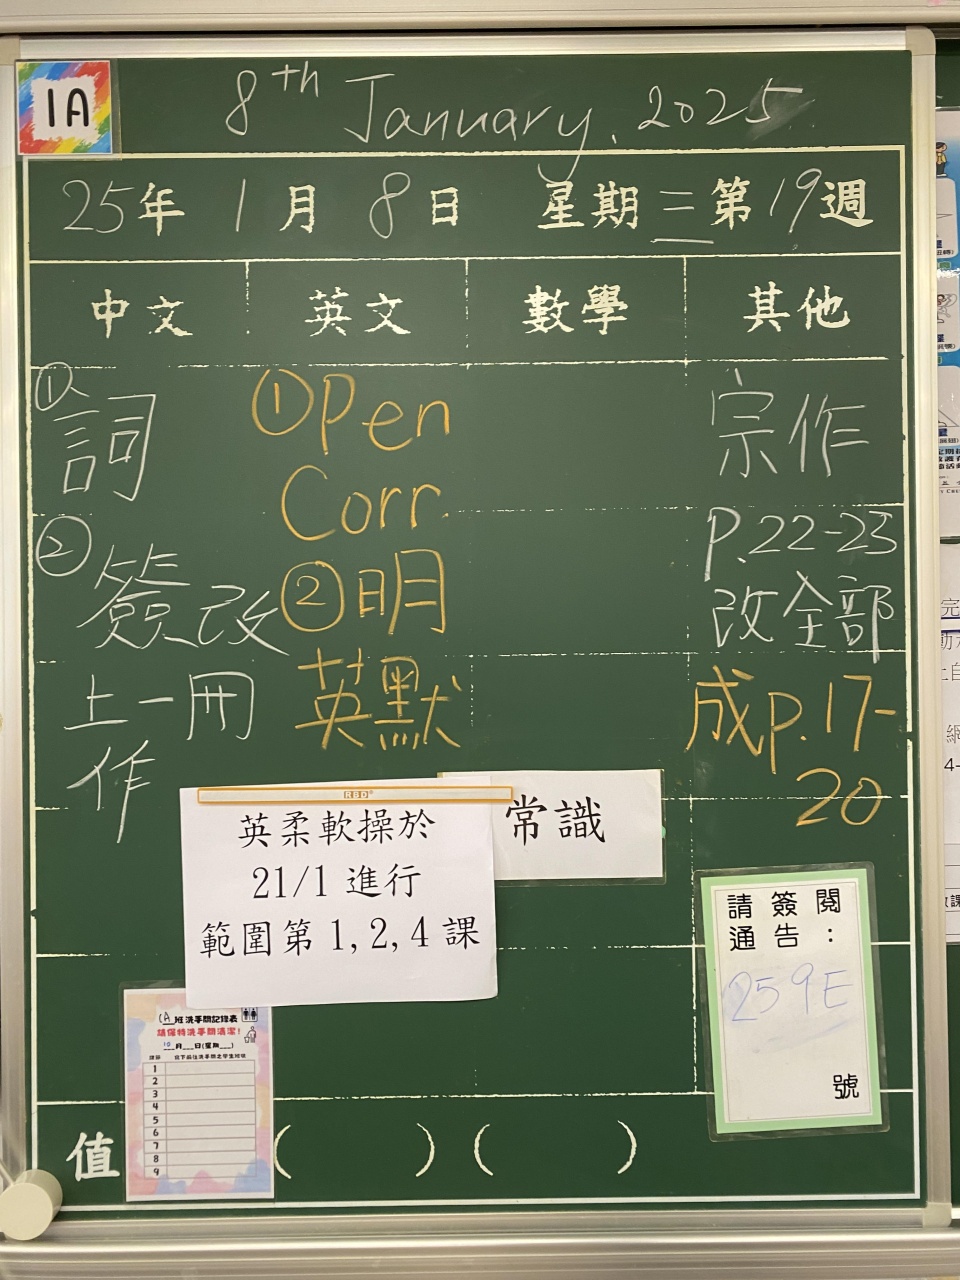 1A
8th January, 2025
25年 1月 8日 星期三 第19週
中文 英文 數學 其他
① 詞
② 簽改
上一冊
作
① Pen
Corr.
② 明
英默
宗作
P.22-23
改全部
成p.17-
20
RBD
英柔軟操於
21/1 進行
範圍第 1, 2, 4 課
常識
請簽閱
通告：
259E
號
1A 班洗手間記錄表
請保持洗手間清潔！
10月__日(星期__)
1
2
3
4
5
6
7
8
9
值 ( ) ( )